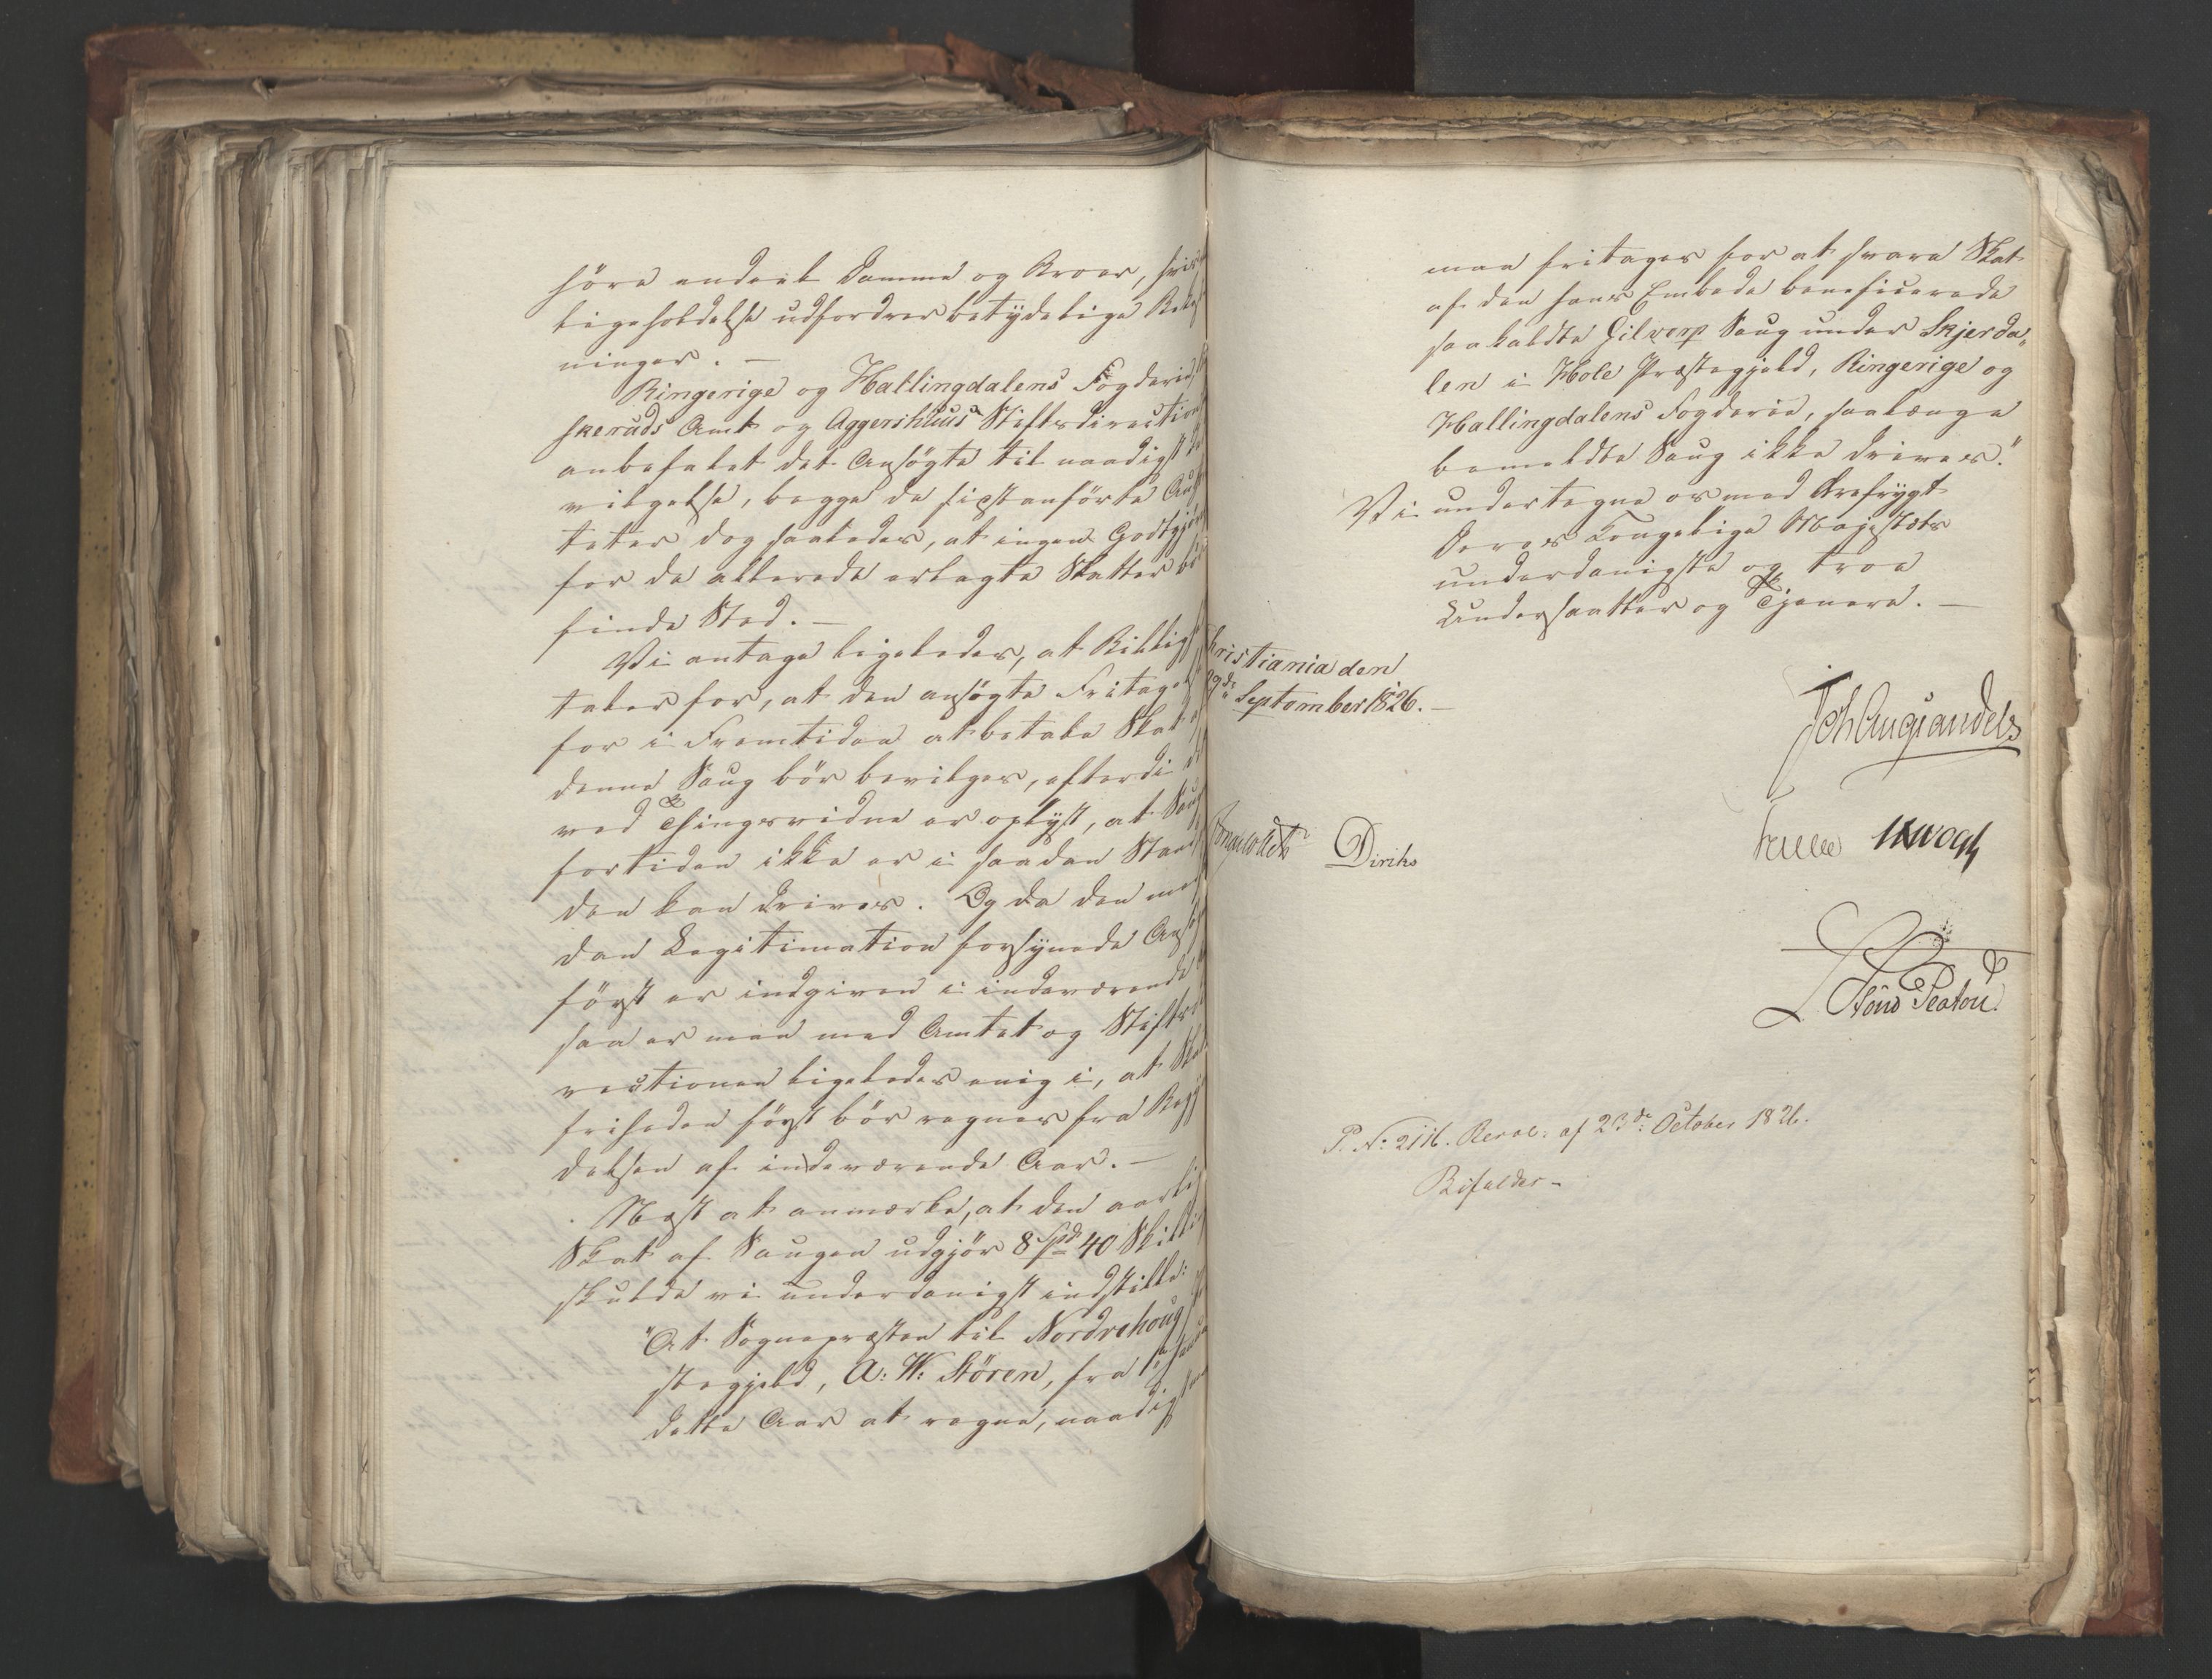 höre endeel Damme og Broer, hvis
ligeholdelse udfordrer betydelige Bekost
ninger. —
Ringerige og Hallingdalens Fogderie,
skeruds Amt og Aggershuus Stiftsdirection
anbefalet det Ansögte til naadigst Be
vilgelse, begge de sidstanförte Auc
teter dog saaledes, at ingen Godtgjör
for de allerede erlagte Skatter bö
finde Sted. —
Vi antage ligeledes, at Billigh
taler for, at den ansögte Fritagelse
for i Fremtiden at betale Skat
denne Saug bör bevilges, efterdi d
ved Thingsvidne er oplyst, at Saug
fortiden ikke er i saadan Stand
den kan drives. Og da den med
dan Legitimation forsynede Ansög
först er indgiven i indeværende
saa er man med Amtet og Stiftsdi
rectionen ligeledes enig i, at Skat
friheden först bör regnes fra Begyn
delsen af indeværende Aar. —
Næst at anmærke, at den aarlig
Skat af Saugen udgjör 8 Spd 40 Skilling
skulde vi underdanigst indstille:
"At Sognepræsten til Nordrehoug
stegjeld, A: W: Stören, fra 1ste Janua
dette Aar at regne, naadigst
maa fritages for at svare Skat
af den hans Embede beneficerede
saakaldte Gilverp Saug under Skjerda„
len i Hole Præstegjeld, Ringerige og
Hallingdalens Fogderie, saalænge
bemeldte Saug ikke drives."
Vi undertegne os med Ærefrygt
Deres Kongelige Majestæts
underdanigste og troe
Undersaatter og Tjenere. —
Christiania den
September 1826. —
Diriks
P. N: 2116. Resol: af 23de October 1826.
Bifaldes –